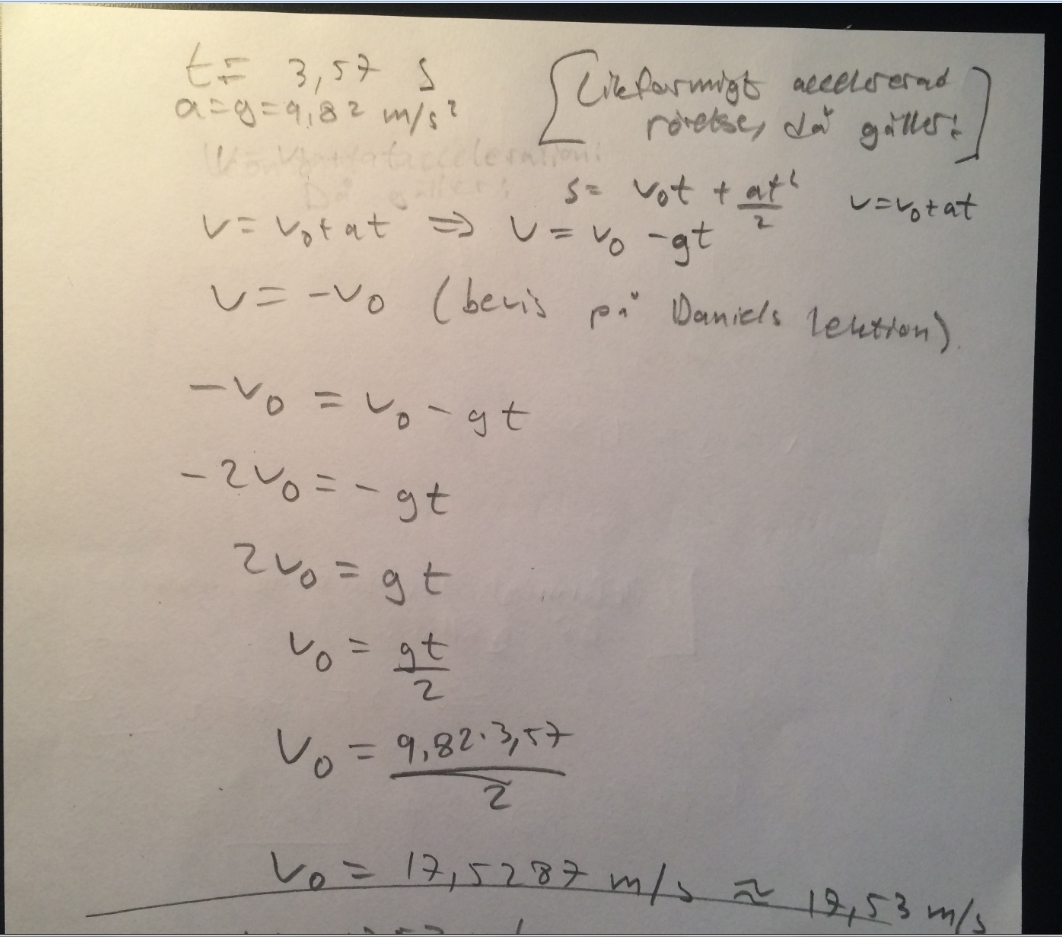 t = 3,57 s
a=g=9,82 m/s²
[Likformigt accelererad
rörelse, då gäller:]
s= v₀t + at²/2   v=v₀+at
v = v₀+at ⇒ v = v₀ -gt
v = -v₀ (bevis på Daniels lektion).
-v₀ = v₀ - gt
-2v₀ = - gt
2v₀ = gt
v₀ = gt/2
v₀ = 9,82·3,57/2
v₀ = 17,5287 m/s ≈ 17,53 m/s